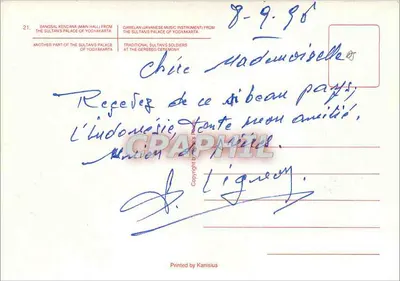 21. BANGSAL KESEAWA JAWA (HALL) FROM THE SULTAN'S PALACE OF YOGYAKARTA
GAMELAN (JAVANESE MUSIC INSTRUMENT) FROM THE SULTAN'S PALACE OF YOGYAKARTA
ANOTHER PART OF THE SULTAN'S PALACE OF YOGYAKARTA
TRADITIONAL SULTAN'S SOLDIERS AT THE GEREBEG CEREMONY
8-9-96
Chère Mademoiselle
Recevez de ce si beau pays,
l'Indonésie, toute mon amitié.
Union de
CPARAMA
Copyright by
Printed by Kanisius